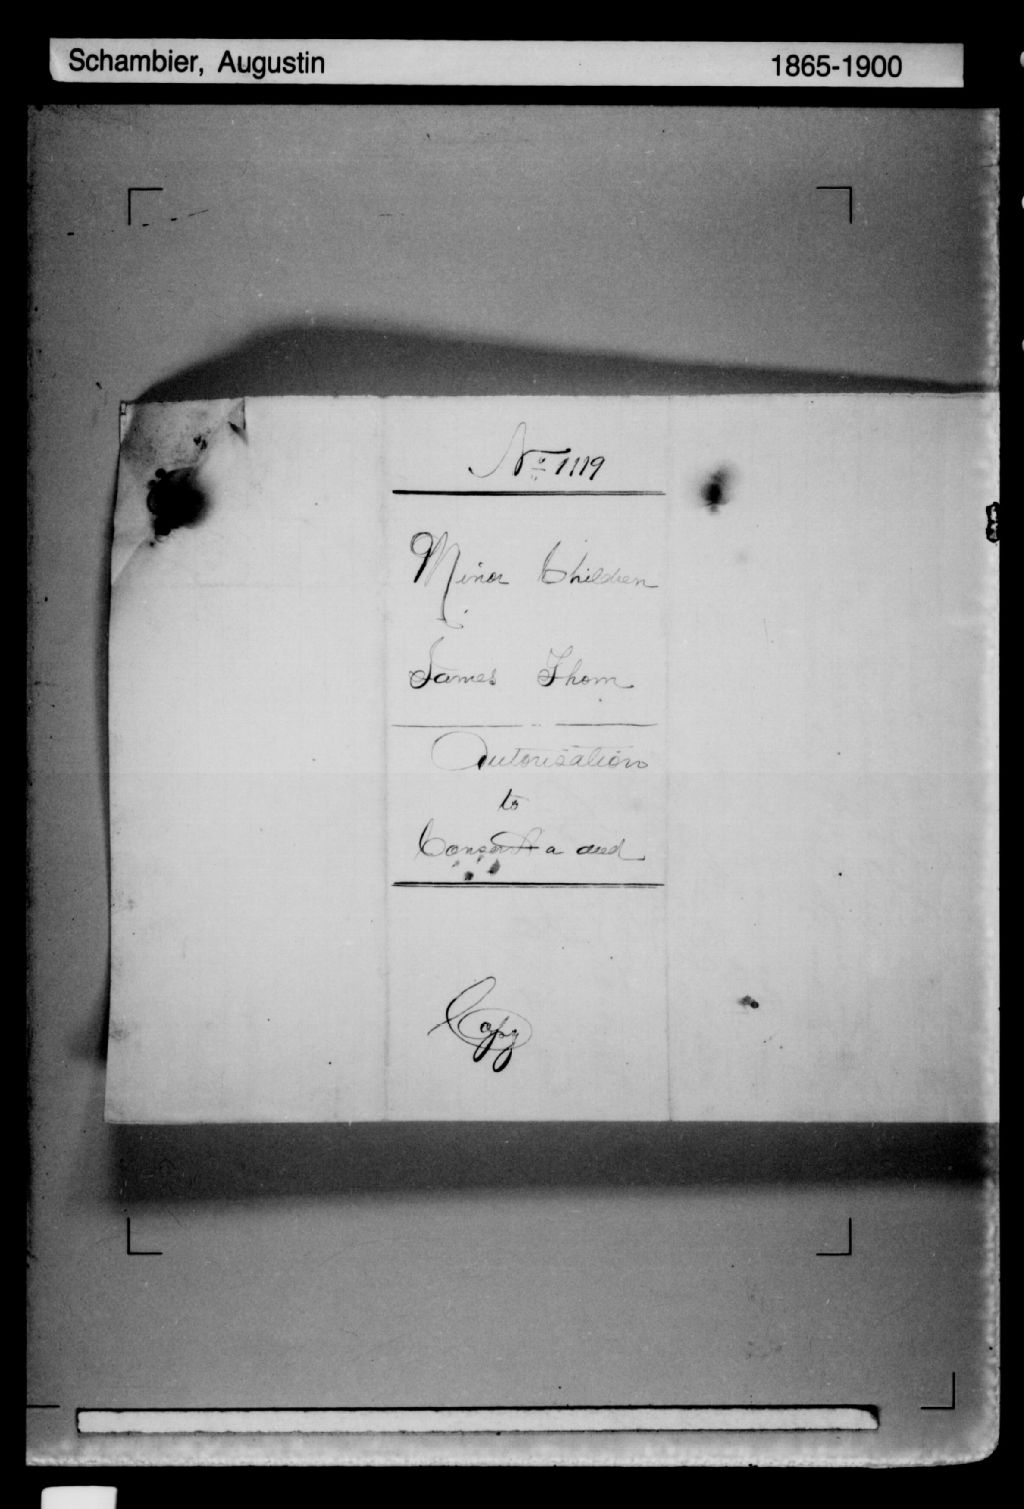 Schambier, Augustin 1865-1900
No 1119
Minor Children
James Thom
Autorisation
to
Consent a deed
Copy